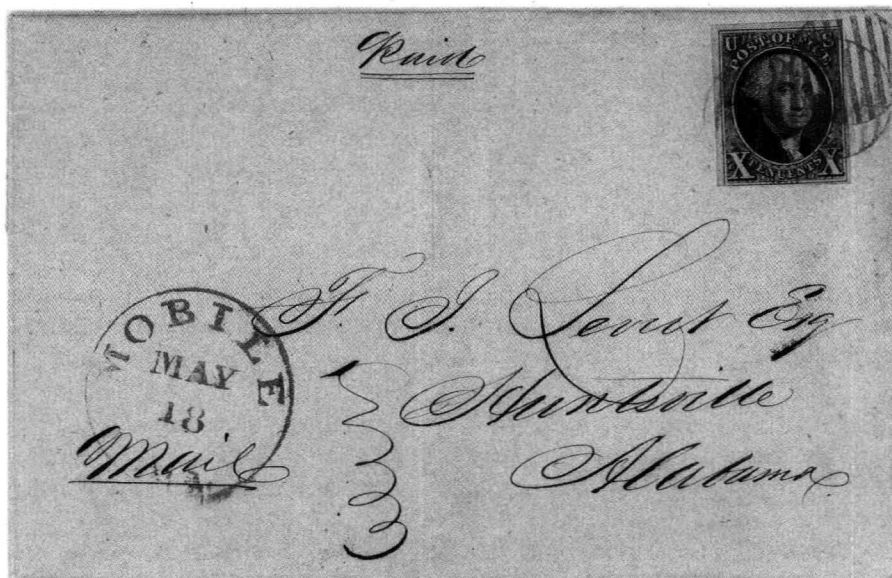 Paid
U S
POST OFFICE
X TEN CENTS X
MOBILE
MAY
18
F. J. Levert Esq
Huntsville
Alabama
Mail